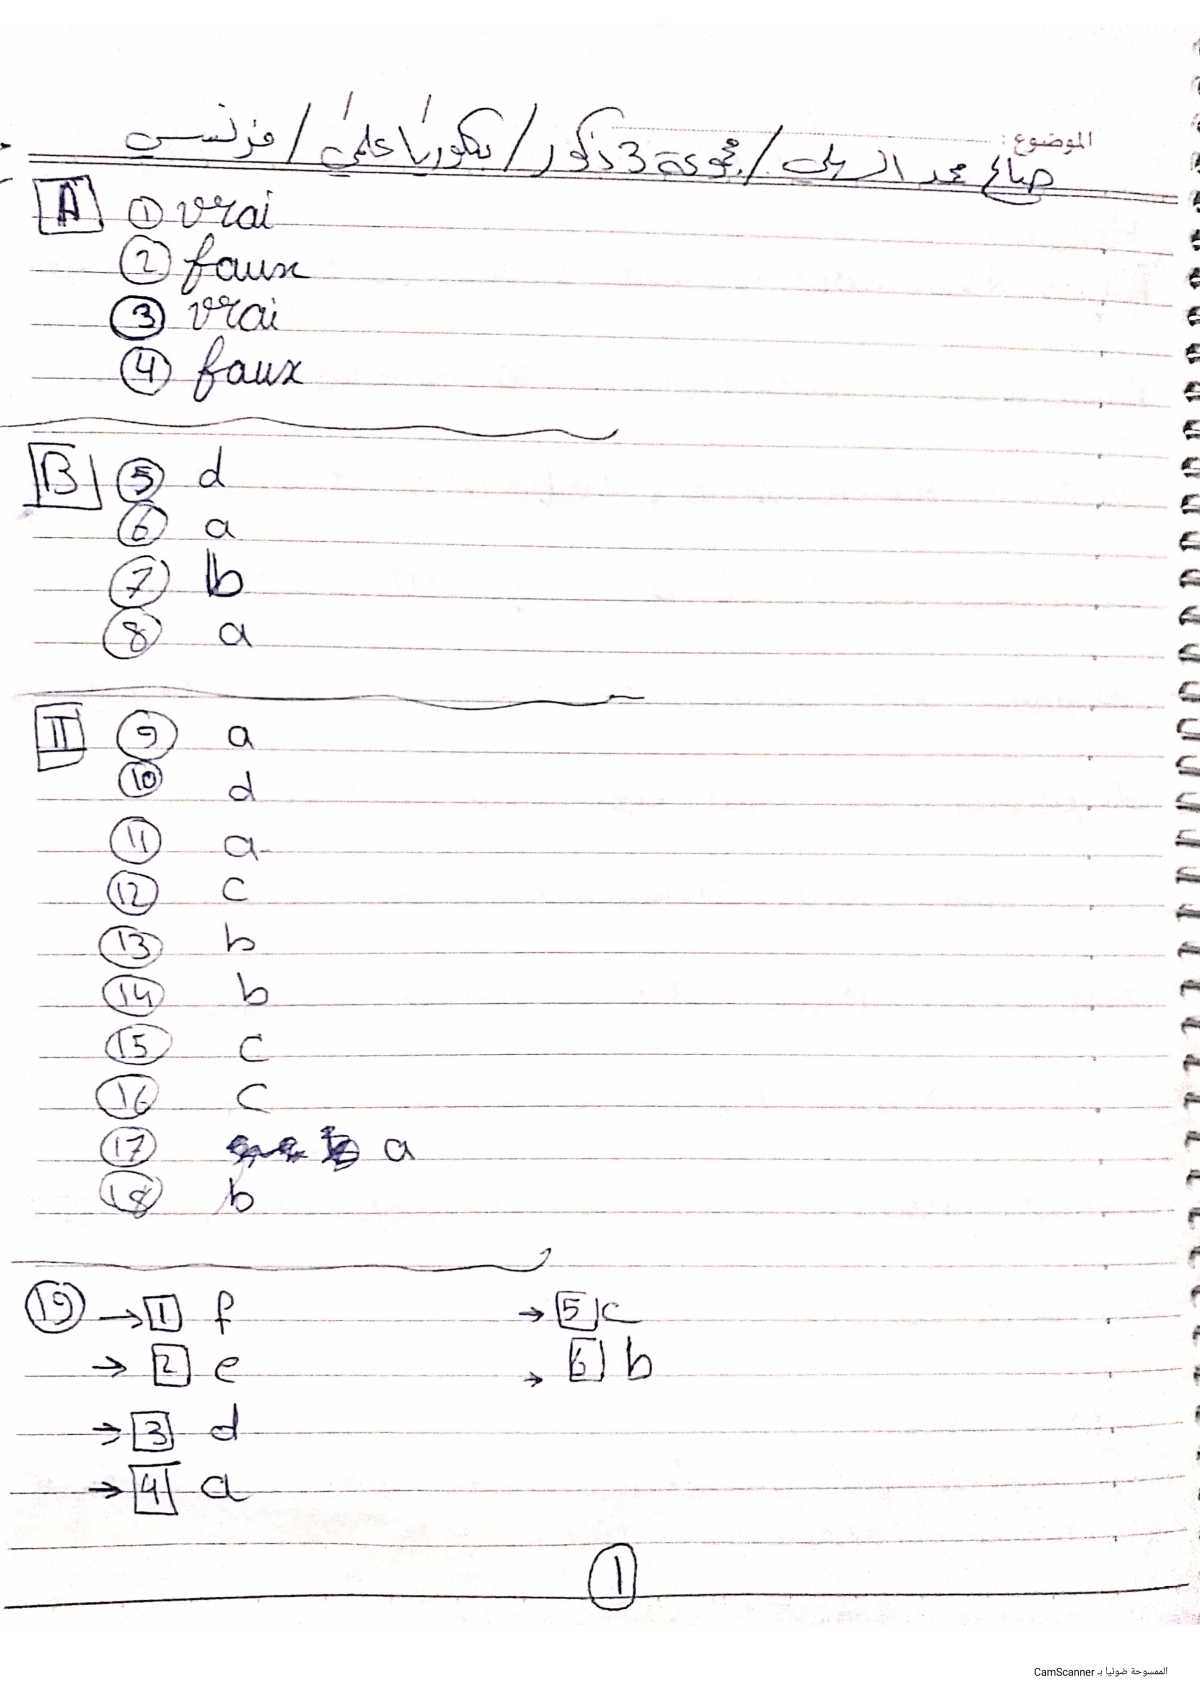 الموضوع:
صالح محمد / مجموعة 3 ذكور / بكلوريا علمي / فرنسي
A 1 vrai
2 faux
3 vrai
4 faux
B 5 d
6 a
7 b
8 a
II 9 a
10 d
11 a
12 c
13 b
14 b
15 c
16 c
17 a
18 b
19 → 1 f → 5 c
→ 2 e → 6 b
→ 3 d
→ 4 a
1
الممسوحة ضوئيا بـ CamScanner